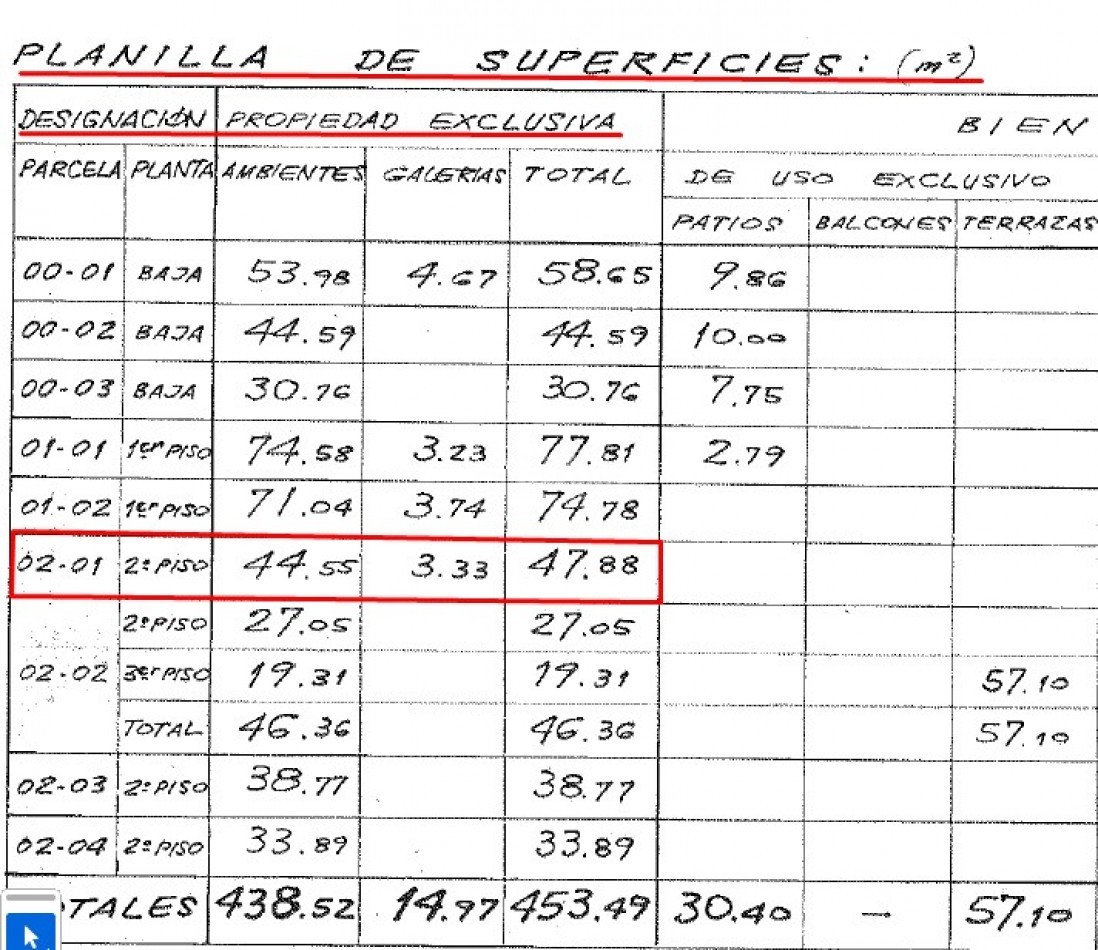 PLANILLA DE SUPERFICIES: (m²)
DESIGNACIÓN PROPIEDAD EXCLUSIVA BIEN
PARCELA PLANTA AMBIENTES GALERIAS TOTAL DE USO EXCLUSIVO
PATIOS BALCONES TERRAZAS
00-01 BAJA 53.98 4.67 58.65 9.86
00-02 BAJA 44.59 44.59 10.00
00-03 BAJA 30.76 30.76 7.75
01-01 1er PISO 74.58 3.23 77.81 2.79
01-02 1er PISO 71.04 3.74 74.78
02-01 2º PISO 44.55 3.33 47.88
2º PISO 27.05 27.05
02-02 3er PISO 19.31 19.31 57.10
TOTAL 46.36 46.36 57.10
02-03 2º PISO 38.77 38.77
02-04 2º PISO 33.89 33.89
OTALES 438.52 14.97 453.49 30.40 — 57.10